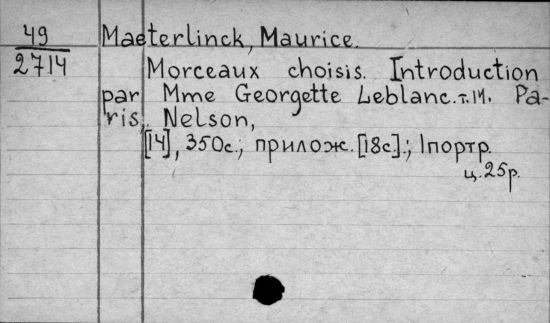 49
2714
Maeterlinck, Maurice.
Morceaux choisis. Introduction
par Mme Georgette Leblanc. т.14. Pa-
ris, Nelson,
[14], 350с.; прилож. [18с].; 1портр.
ц. 25р.